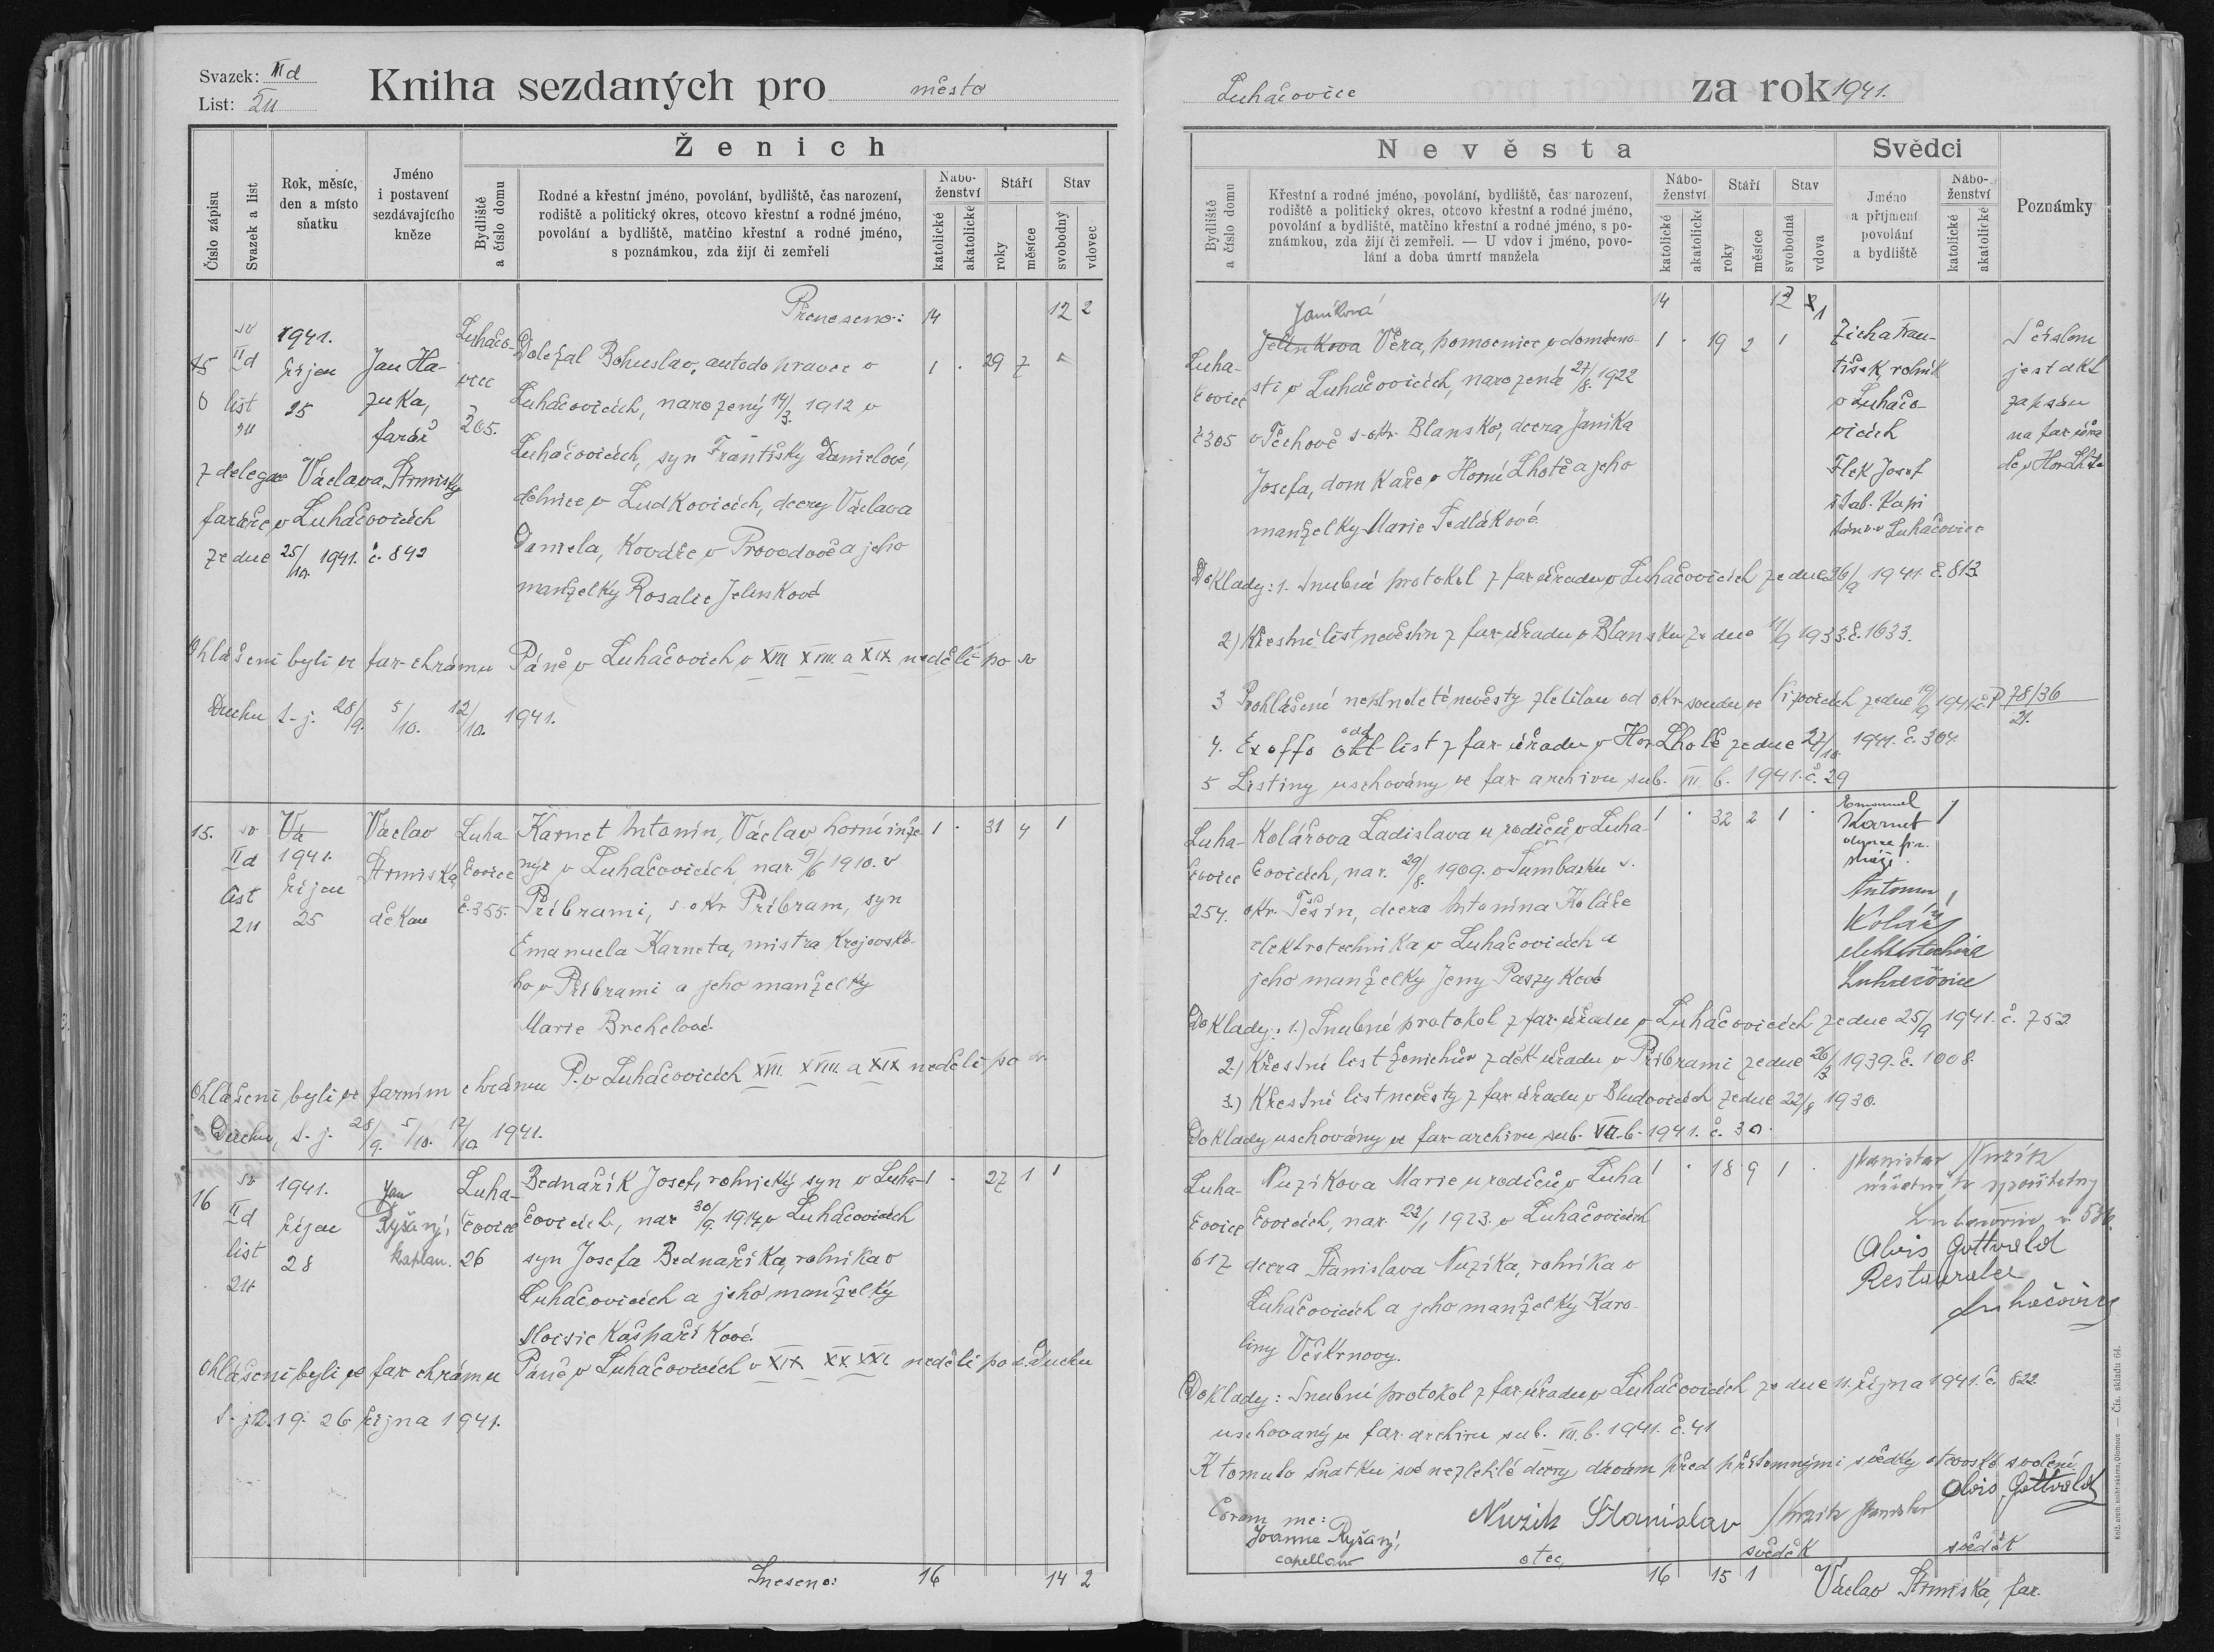 Svazek: IId
List: 211
Kniha sezdaných pro město
Ženich
Číslo zápisu
Svazek a list
Rok, měsíc,
den a místo
sňatku
Jméno
i postavení
sezdávajícího
kněze
Bydliště
a číslo domu
Rodné a křestní jméno, povolání, bydliště, čas narození,
rodiště a politický okres, otcovo křestní a rodné jméno,
povolání a bydliště, matčino křestní a rodné jméno,
s poznámkou, zda žijí či zemřeli
Nábo-
ženství
katolické
akatolické
Stáří
roky
měsíce
Stav
svobodný
vdovec
Přeneseno: 14 12 2
sv
IId
list
1941.
říjen
25
Jan Ha-
zuka,
farář
Luhačo-
vice
Doležal Bohuslav, autodopravce v 1 . 29 7
Luhačovicích, narozený 14/3. 1912 v
Luhačovicích, syn Františky Danielové,
dělnice v Ludkovicích, dcery Václava
Daniela, kováře v Provodově a jeho
manželky Rosalie Jelinkové
z delegace Václava Strmisky
faráře v Luhačovicích
ze dne 25/10. 1941. č. 842
Ohlášeni byli ve far. chrámu Páně v Luhačovich v XVII. XVIII. a XIX. neděli po sv
Duchu t. j. 28/9. 5/10. 12/10. 1941.
15.
sv
IId
list
211
1941.
říjen
25
Václav
Strmiska,
děkan
Luha
čovice
č. 355.
Karnet Antonín, Václav horní inže 1 . 31 4 1
nýr v Luhačovicích nar. 9/6 1910. v
Příbrami, s. okr. Příbram, syn
Emanuela Karneta, mistra krejčovské-
ho v Příbrami a jeho manželky
Marie Brchelové.
Ohlášeni byli ve farním chrámu P. v Luhačovicích XVII. XVIII. a XIX neděli po sv
Duchu, t. j. 28/9. 5/10. 12/10. 1941.
16
sv
IId
list
211
1941.
říjen
28
Jan
Ryšaný,
kaplan.
Luha-
čovice
26
Bednařík Josef, rolnický syn v Luha- 1 . 27 1 1
čovicích, nar. 30/9. 1914, v Luhačovicích
syn Josefa Bednaříka, rolníka v
Luhačovicích a jeho manželky
Aloisie Kašpaříkové.
Ohlášeni byli ve far. chrámu Páně v Luhačovicích v XIX XX XXI. neděli po s. Duchu
t. j. 12. 19. 26. října 1941.
Sneseno: 16 14 2
Luhačovice za rok 1941.
Nevěsta
Svědci
Bydliště
a číslo domu
Křestní a rodné jméno, povolání, bydliště, čas narození,
rodiště a politický okres, otcovo křestní a rodné jméno,
povolání a bydliště, matčino křestní a rodné jméno, s po-
známkou, zda žijí či zemřeli. — U vdov i jméno, povo-
lání a doba úmrtí manžela
Nábo-
ženství
katolické
akatolické
Stáří
roky
měsíce
Stav
svobodná
vdova
Jméno
a příjmení
povolání
a bydliště
Nábo-
ženství
katolické
akatolické
Poznámky
14
Luha-
čovice
č 305
Janíková
Jelinkova Věra, pomocnice v domácno- 1 . 19 2 1
sti v Luhačovicích, narozená 27/8. 1922
v Těchově s. okr. Blansko, dcera Janíka
Josefa, domkaře v Horní Lhotě a jeho
manželky Marie Sedlákové.
Zicha Fran-
tišek, rolník
v Luhačo-
vicích
Flek Josef
štab. kapi
tán v Luhačovice
S číslem
jest akt
zapsán
na far. úřa
dě v Hor. Lhotě
Doklady: 1. Snubní protokol z far. úřadu v Luhačovicích ze dne 26/9 1941. č. 813.
2) Křestní list nevěstin z far. úřadu v Blansku ze dne 11/9 1933. č. 1633.
3 Prohlášení neplnoleté nevěsty zletilou od okr. soudu ve Vizovicích ze dne 19/9 1941 č. P 78/36
21.
4. Ex offo odd. list z far. úřadu v Hor. Lhotě ze dne 27/10 1941. č. 304
5 Listiny uschovány ve far. archivu sub. VII. b. 1941. č. 29
Luha-
čovice
254.
Kolářova Ladislava u rodičů v Luha- 1 . 32 2 1 .
čovicích, nar. 29/8. 1909. v Šumbarku s.
okr. Těšín, dcera Antonína Koláře
elektrotechnika v Luhačovicích a
jeho manželky Jeny Paszykové
Emanuel
Karnet 1
Antonín
Kolář
elektrotechnik
Luhačovice
Doklady: 1.) Snubné protokol z far. úřadu v Luhačovicích ze dne 25/9 1941. č. 752
2.) Křestní list ženichův z děk. úřadu v Příbrami ze dne 26/3 1939. č. 1008.
3.) Křestní list nevěsty z far. úřadu v Bludovicích ze dne 22/8 1930.
Doklady uschovány ve far. archivu sub. VII. b. 1941. č. 30.
Luha-
čovice
617
Nuzíkova Marie u rodičů v Luha 1 . 18 9 1 .
čovicích, nar. 22/1 1923. v Luhačovicích
dcera Stanislava Nuzíka, rolníka v
Luhačovicích a jeho manželky Karo-
liny Věškrnovy.
Stanislav Nuzík
Alois Gottvald
Restaurater
Luhačovice
Doklady: Snubní protokol z far. úřadu v Luhačovicích ze dne 11. října 1941. č. 822.
uschovaný v far. archivu sub. VII. b. 1941. č. 41
K tomuto sňatku své nezletilé dcery dávám před přítomnými svědky otcovské svolení.
Coram me:
Joanne Ryšaný,
capellano
Nuzík Stanislav
otec
Nuzik Stanislav
svědek
Alois Gottvald
svědek
16 15 1
Václav Strmiska, far.
Knih. arcib. knihtiskárna, Olomouc — Čís. skladu 64.